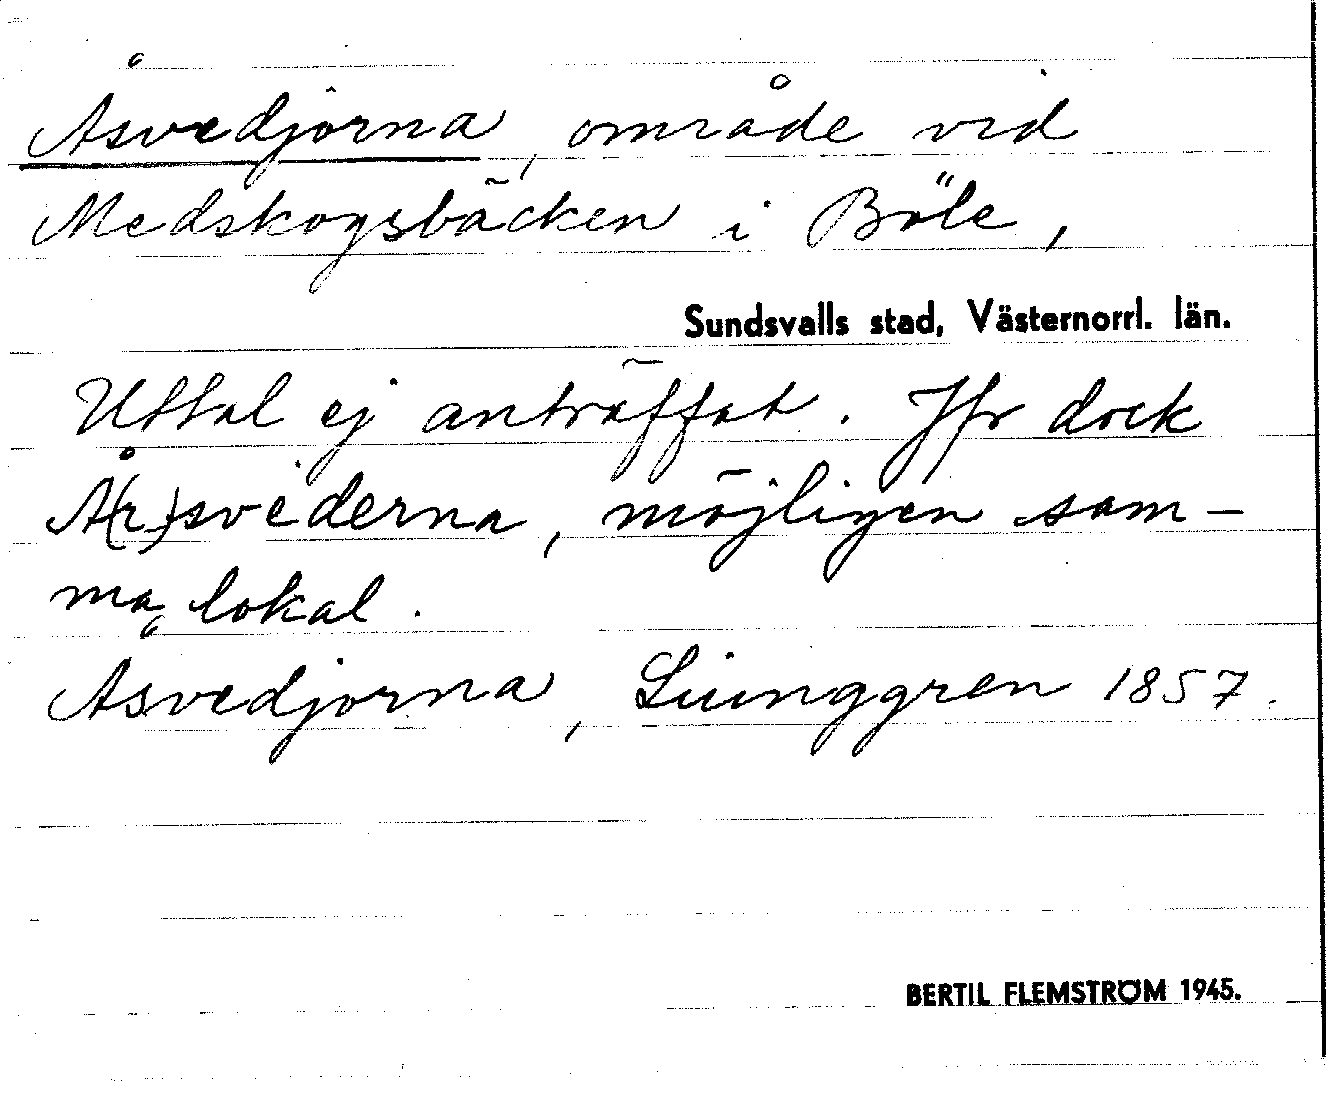 Åsvedjorna, område vid
Medskogsbäcken i Böle,
Sundsvalls stad, Västernorrl. län.
Uttal ej anträffat. Jfr dock
Å(r)svederna, möjligen sam-
ma lokal.
Åsvedjorna, Liunggren 1857.
BERTIL FLEMSTRÖM 1945.